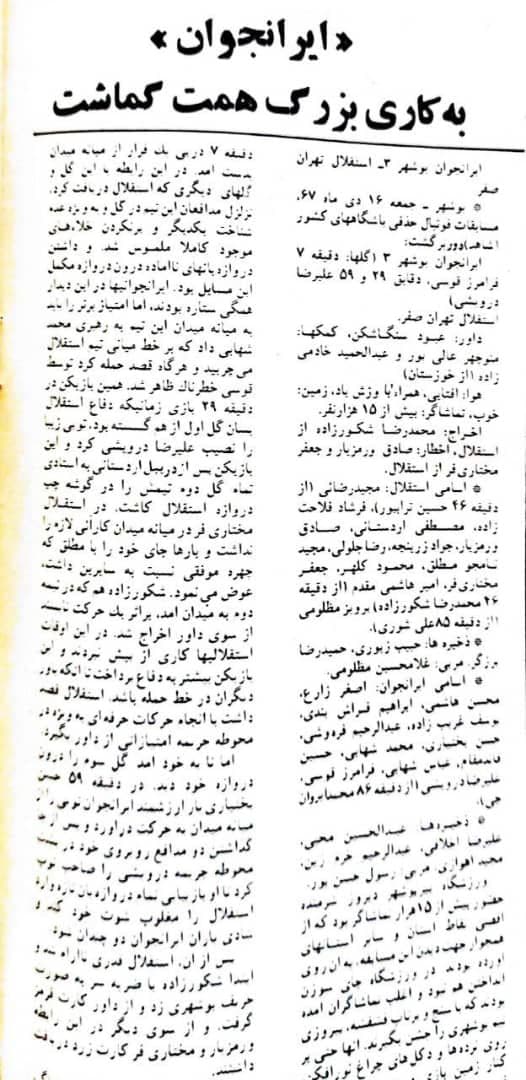 «ایرانجوان»
به کاری بزرگ همت گماشت
ایرانجوان بوشهر ۳ـ استقلال تهران
صفر
* بوشهر ـ جمعه ۱۶ دی ماه ۶۷،
مسابقات فوتبال حذفی باشگاههای کشور
(شاهد) دور برگشت:
ایرانجوان بوشهر ۳ (گلها: دقیقه ۷
فرامرز قوسی، دقایق ۲۹ و ۵۹ علیرضا
درویشی)
استقلال تهران صفر.
داور: عبود سنگاشکن، کمکها:
منوچهر عالی پور و عبدالحمید خادمی
زاده (از خوزستان)
هوا: آفتابی، همراه با وزش باد، زمین:
خوب، تماشاگر: بیش از ۱۵ هزارنفر.
اخراج: محمدرضا شکورزاده از
استقلال، اخطار: صادق ورمزیار و جعفر
مختاری‌فر از استقلال.
* اسامی استقلال: مجیدرضائی (از
دقیقه ۴۶ حسین ترابپور)، فرشاد فلاحت
زاده، مصطفی اردستانی، صادق
ورمزیار، جواد زرینچه، رضا جلولی، مجید
نامجو مطلق، محمود کلهر، جعفر
مختاری‌فر، امیر هاشمی مقدم (از دقیقه
۴۶ محمدرضا شکورزاده) پرویز مظلومی
(از دقیقه ۸۵ علی شوری).
* ذخیره ها: حبیب زیوری، حمیدرضا
برزگر. مربی: غلامحسین مظلومی.
* اسامی ایرانجوان: اصغر زارع،
محسن هاشمی، ابراهیم فراش بندی،
یوسف غریب زاده، عبدالرحیم فروشی،
حسن بختیاری، محمد شهابی، حسین
قائدمقام، عباس شهابی، فرامرز قوسی،
علیرضا درویشی (از دقیقه ۸۶ محمدایروان
چی)
* ذخیره‌ها عبدالحسین محبی،
علیرضا اخلاقی، عبدالرحیم خره زین،
مجید اهوازی. مربی: رسول حسن پور.
ورزشگاه بیرپوشهر دیروز شرمنده
حضور بیش از ۱۵ هزار تماشاگر بود که از
اقصی نقاط استان و سایر استانهای
همجوار جهت دیدن این مسابقه، به آن روی
آورده بودند. در ورزشگاه جای سوزن
انداختن هم نبود و اغلب تماشاگران آمده
بودند که با سنج و پرتاب فشفشه، پیروزی
تیم بوشهری را جشن بگیرند. آنها حتی بر
روی نرده‌ها و دکل‌های چراغ نورافکن
کنار زمین بازی
دقیقه ۷ در پی یک فرار از میانه میدان
بدست آمد. در این رابطه با این گل و
گلهای دیگری که استقلال دریافت کرد،
تزلزل مدافعان این تیم در گل و به ویژه عدم
شناخت یکدیگر و پرنکردن خلاءهای
موجود کاملا ملموس شد. و داشتن
دروازه بانهای ناآماده درون دروازه مکمل
این مسایل بود. ایرانجوانیها در این دیدار
همگی ستاره بودند، اما امتیاز برتر را باید
به میانه میدان این تیم به رهبری محمد
شهابی داد که بر خط میانی تیم استقلال
می‌چربید و هرگاه قصد حمله کرد توسط
قوسی خطرناک ظاهر شد. همین بازیکن در
دقیقه ۲۹ بازی زمانیکه دفاع استقلال
بسان گل اول از هم گسسته بود، توپی زیبا
را نصیب علیرضا درویشی کرد و این
بازیکن پس از دریبل اردستانی به استادی
تمام گل دوم تیمش را در گوشه چپ
دروازه استقلال کاشت. در استقلال
مختاری فر در میانه میدان کارائی لازم را
نداشت و بارها جای خود را با مطلق که
چهره موفقی نسبت به سایرین داشت،
عوض می‌نمود. شکورزاده هم که در نیمه
دوم به میدان آمد، براثر یک حرکت ناپسند
از سوی داور اخراج شد. در این اوقات
استقلالیها کاری از پیش نبردند و این
بازیکن بیشتر به دفاع پرداخت تا آنکه یاور
دیگران در خط حمله باشد. استقلال قصد
داشت با انجام حرکات حرفه‌ای به ویژه در
محوطه جریمه امتیازاتی از داور بگیرد،
اما تا به خود آمد گل سوم را درون
دروازه خود دید. در دقیقه ۵۹ حسن
بختیاری یار ارزشمند ایرانجوان توپی را از
میانه میدان به حرکت درآورد و پس از جا
گذاشتن دو مدافع روبروی خود در پشت
محوطه جریمه درویشی را صاحب توپ
کرد تا او با زیبایی تمام دروازه بان تازه وارد
استقلال را مغلوب شوت خود کند و
شادی یاران ایرانجوان دو چندان شود.
پس از آن، استقلال قدری ناآرام شد و
ابتدا شکورزاده با ضربه سر به صورت
حریف بوشهری زد و از داور کارت قرمز
گرفت. و از سوی دیگر در این رابطه
ورمزیار و مختاری فر کارت زرد دریافت
داشتند.